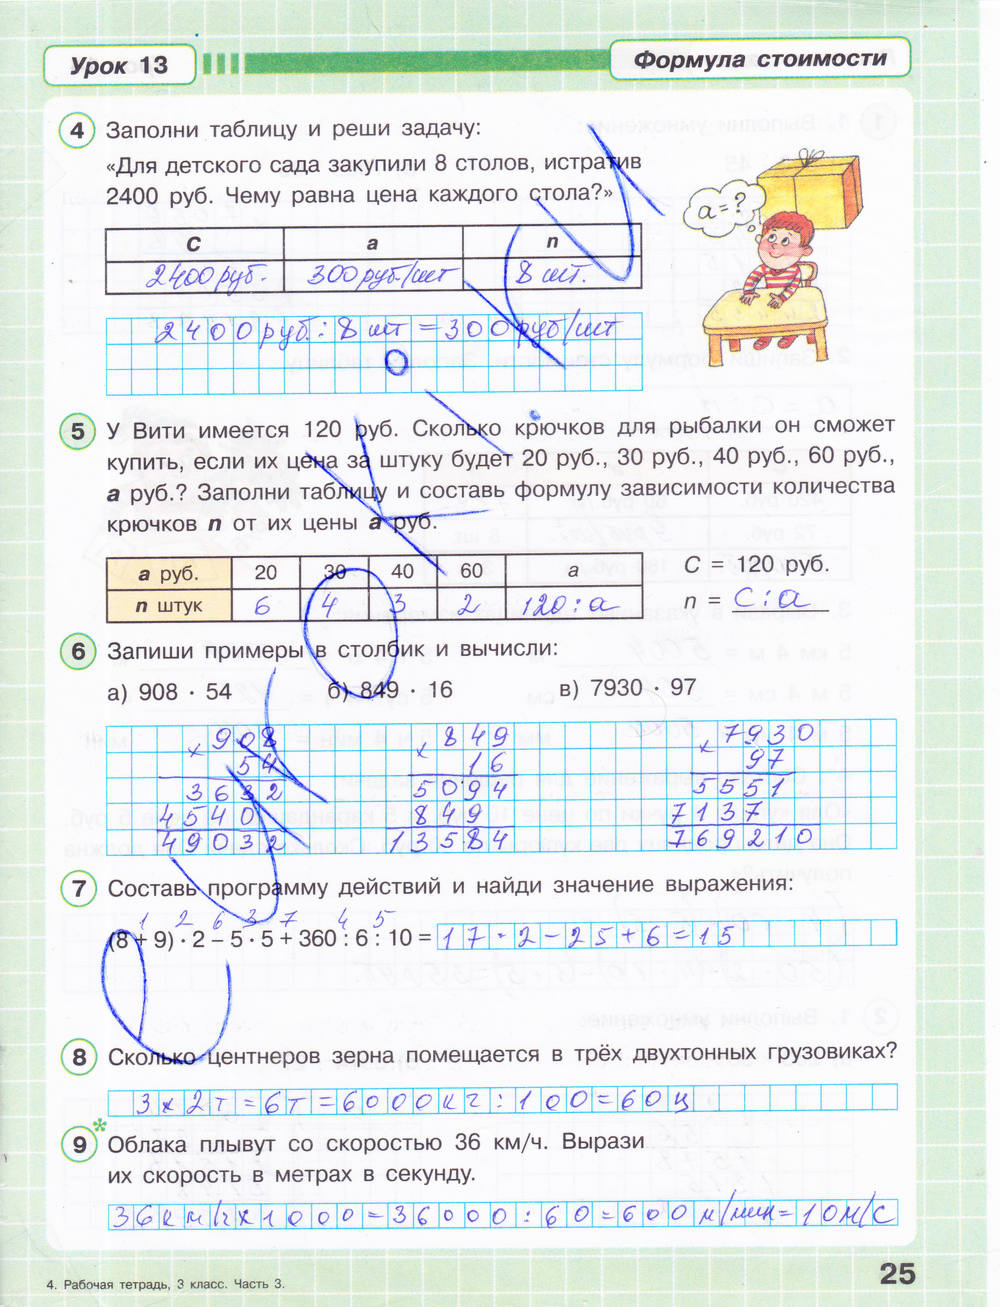 Урок 13
Формула стоимости
4 Заполни таблицу и реши задачу:
«Для детского сада закупили 8 столов, истратив
2400 руб. Чему равна цена каждого стола?»
a = ?
C a n
2400 руб. 300 руб/шт 8 шт.
2400 руб : 8 шт = 300 руб/шт
5 У Вити имеется 120 руб. Сколько крючков для рыбалки он сможет
купить, если их цена за штуку будет 20 руб., 30 руб., 40 руб., 60 руб.,
a руб.? Заполни таблицу и составь формулу зависимости количества
крючков n от их цены a руб.
a руб. 20 30 40 60 a
n штук 6 4 3 2 120 : a
C = 120 руб.
n = C : a
6 Запиши примеры в столбик и вычисли:
а) 908 · 54 б) 849 · 16 в) 7930 · 97
908 849 7930
× 54 × 16 × 97
3632 5094 5551
4540 849 7137
49032 13584 769210
7 Составь программу действий и найди значение выражения:
1 2 6 3 7 4 5
(8 + 9) · 2 – 5 · 5 + 360 : 6 : 10 = 17 · 2 – 25 + 6 = 15
8 Сколько центнеров зерна помещается в трёх двухтонных грузовиках?
3 × 2т = 6т = 6000кг : 100 = 60ц
9* Облака плывут со скоростью 36 км/ч. Вырази
их скорость в метрах в секунду.
36км/ч × 1000 = 36000 : 60 = 600 м/мин = 10м/с
4. Рабочая тетрадь, 3 класс. Часть 3.
25